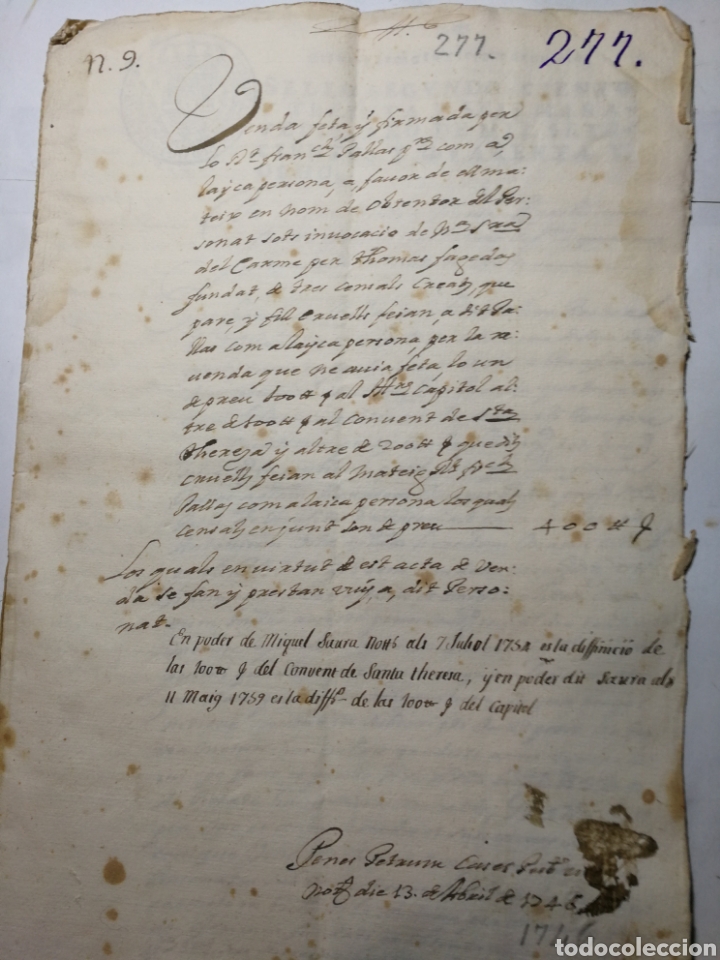 N. 9.
277.
277.
Venda feta, y firmada per
lo Dr. Franch Pallas pre com a,
layca persona, a, favor de ell ma-
teix en nom de obtentor del Per-
sonat sots invocacio de Na Sra
del Carme per Thomas Fagedas
fundat, de tres censals creats, que
pare, y fill Cruells feian, a dit Pa-
llas com a layca persona, per la re-
venda que ne avia feta, lo un
de preu 100 ll al Capitol al-
tre de 100 ll al Convent de Sta
Theresa y altre de 200 ll que dits
Cruells feian al Mateix Dr.
Pallas com a laica persona los quals
censals en junt son de preu 400 ll
los quals en virtut de est acta de Ven-
da se fan y prestan vuy, a, dit Perso-
nat.
En poder de Miquel Saura Notti als 7 Juliol 1754 es la diffinicio de
las 100 ll del Convent de Santa Theresa, y en poder dit Saura als
11 Maig 1759 es la diffo de las 100 ll del Capitol
Penes Petrum Cases
Not. die 13. de Abril de 1746
1746
todocoleccion